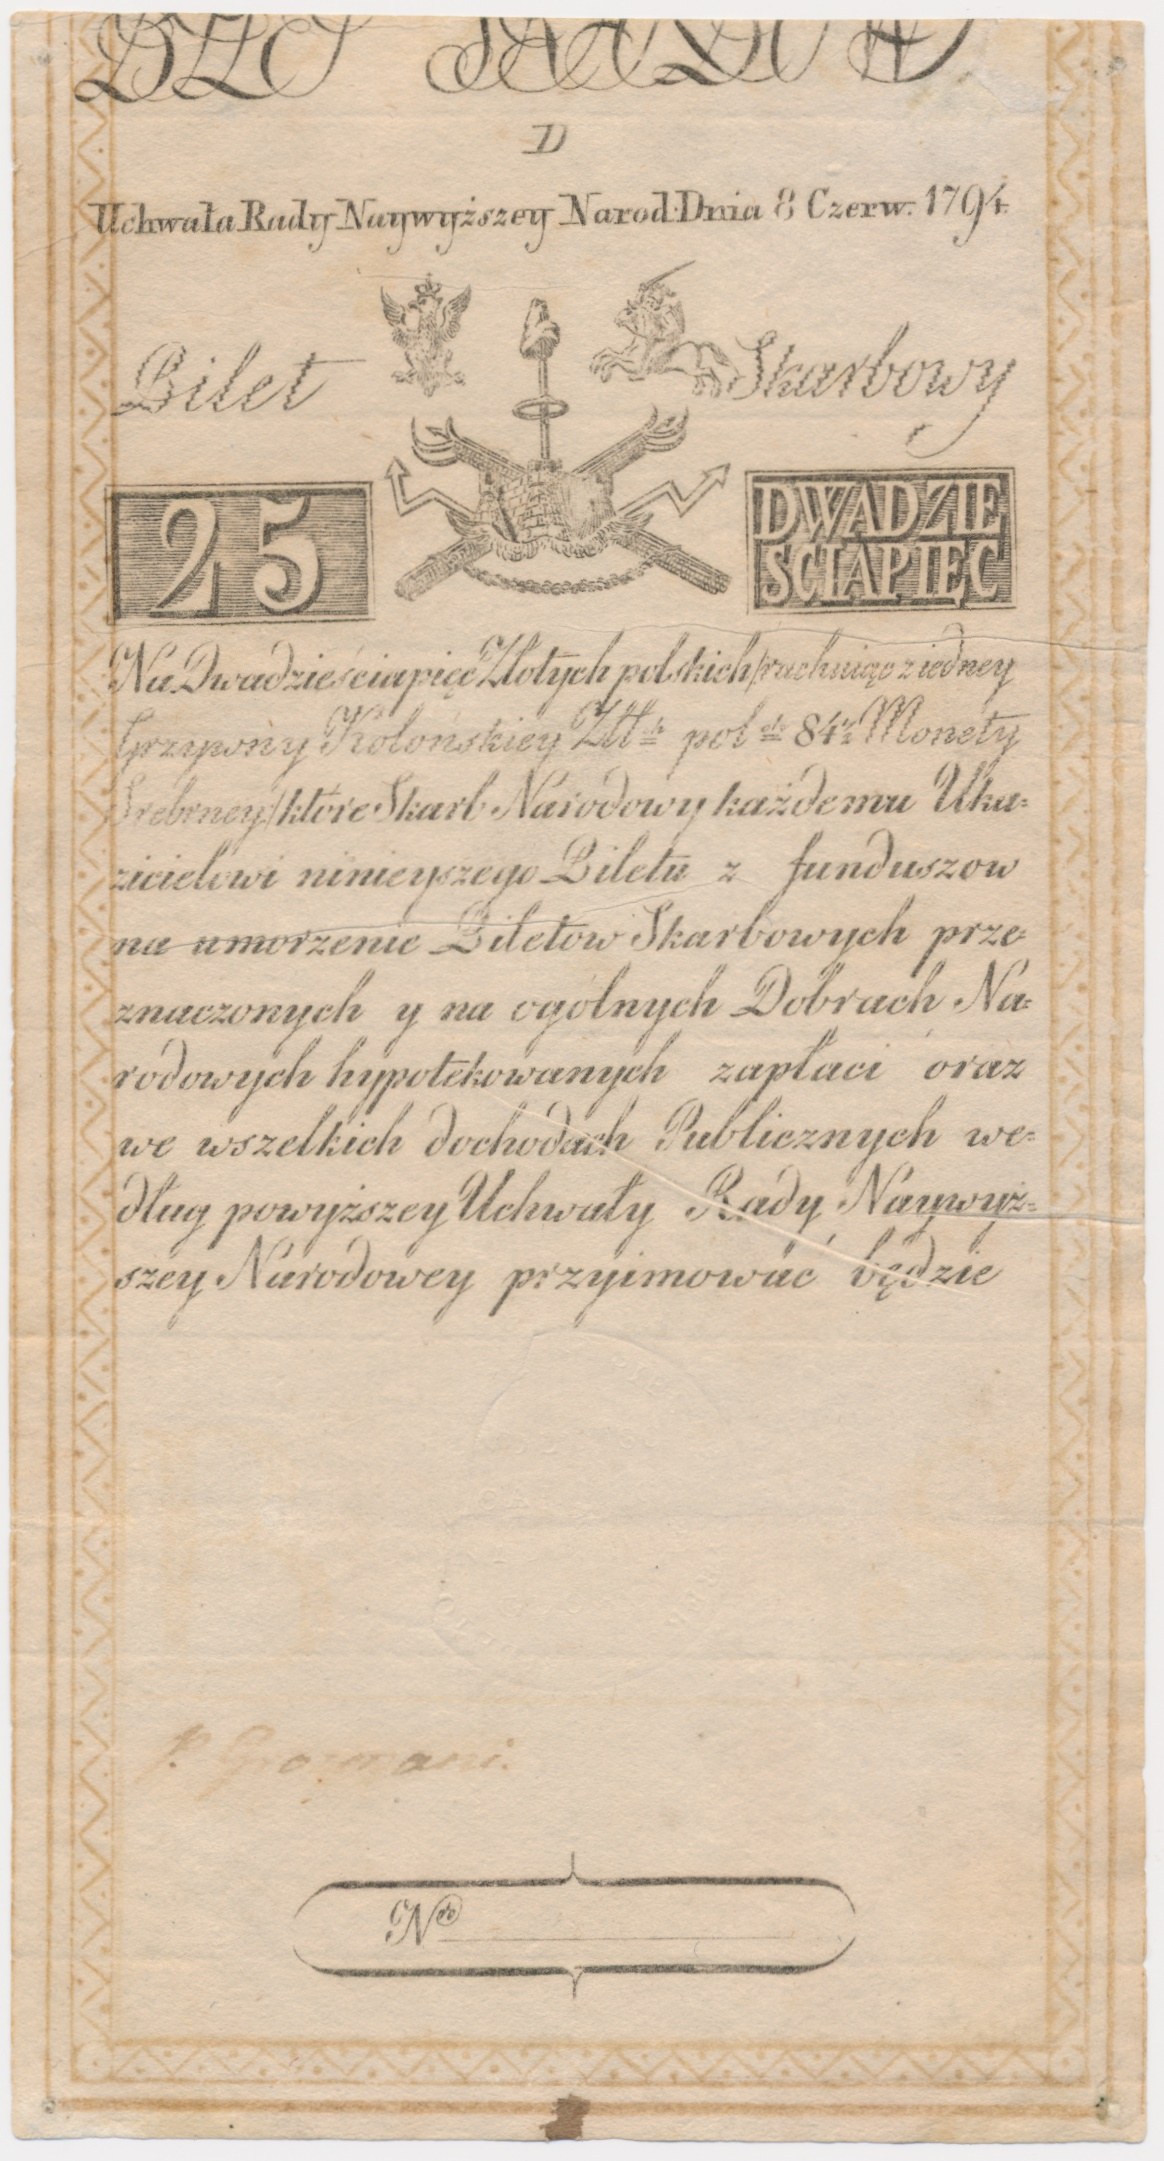 D
Uchwała Rady Naywyższey Narod: Dnia 8 Czerw. 1794.
Bilet Skarbowy
25
DWADZIE
SCIAPIĘC
Na Dwadzieściapięć Złotych polskich /rachuiąc z iedney
Grzywny Kolońskiey Złł. pol. 84½ Monety
Srebrney/ które Skarb Narodowy każdemu Uka=
zicielowi ninieyszego Biletu z funduszow
na umorzenie Biletow Skarbowych prze=
znaczonych y na ogólnych Dobrach Na=
rodowych hypotekowanych zapłaci oraz
we wszelkich dochodach Publicznych we=
dług powyższey Uchwały Rady Naywyż=
szey Narodowey przyimować będzie
No